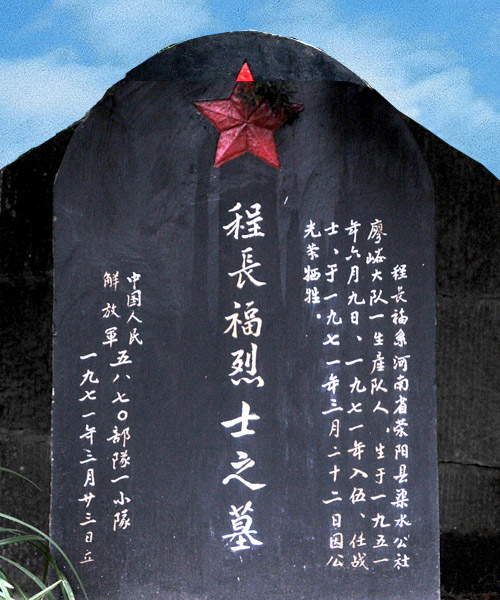 程長福系河南省荥阳县汜水公社
廖峪大队一生産队人，生于一九五一
年六月九日、一九七一年入伍、任战
士、于一九七一年三月二十二日因公
光荣牺牲。
程長福烈士之墓
中国人民
解放軍五八七〇部隊一小隊
一九七一年三月廿三日立